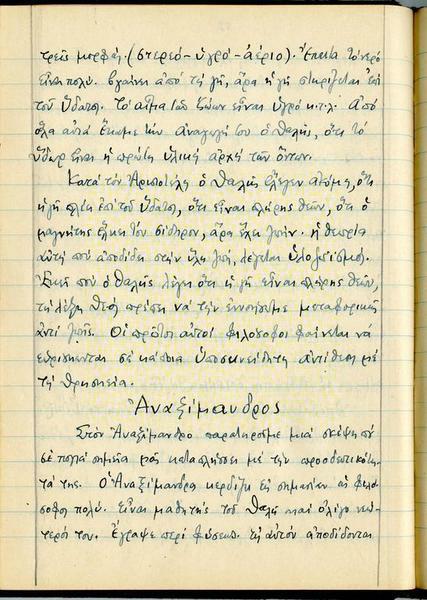 τρεῖς μορφάς. (στερεό-ὑγρό-ἀέριο). Ἔπειτα τό νερό
εἶναι πολύ. βγαίνει ἀπό τή γῆ, ἄρα ἡ γῆ στηρίζεται ἐπί
τοῦ ὕδατος. Τό αἷμα τῶν ζώων εἶναι ὑγρό κ.τ.λ. Ἀπό
ὅλα αὐτά ἔκαμε τήν ἀναγωγή του ὁ Θαλῆς, ὅτι τό
ὕδωρ εἶναι ἡ πρώτη ὑλική ἀρχή τῶν ὄντων.
Κατά τόν Ἀριστοτέλη ὁ Θαλῆς ἔλεγεν ἀκόμη, ὅτι
ἡ γῆ πλέει ἐπί τοῦ ὕδατος, ὅτι εἶναι πλήρης θεῶν, ὅτι ὁ
μαγνήτης ἕλκει τόν σίδηρον, ἄρα ἔχει ψυχήν. ἡ θεωρία
αὐτή πού ἀποδίδει στήν ὕλη ζωή, λέγεται ὑλοζωισμός.
Ἐκεῖ πού ὁ Θαλῆς λέγει ὅτι ἡ γῆ εἶναι πλήρης θεῶν,
τή λέξη θεός πρέπει νά τήν ἐννοήσωμε μεταφορικῶς
ἀντί ζωῆς. Οἱ πρῶτοι αὐτοί φιλόσοφοι φαίνεται νά
εὑρίσκονται σέ κάποια ὑποσυνείδητη ἀντίθεση μέ
τή θρησκεία.
Ἀναξίμανδρος
Στόν Ἀναξίμανδρο παρατηροῦμε μιά σκέψη πού
σέ πολλά σημεῖα μᾶς καταπλήσσει μέ τήν προοδευτικότη-
τά της. Ὁ Ἀναξίμανδρος κερδίζει εἰς σημασίαν ὡς φιλό-
σοφος πολύ. Εἶναι μαθητής τοῦ Θαλῆ καί ὀλίγο νεώ-
τερός του. Ἔγραψε περί φύσεως. εἰς αὐτόν ἀποδίδονται